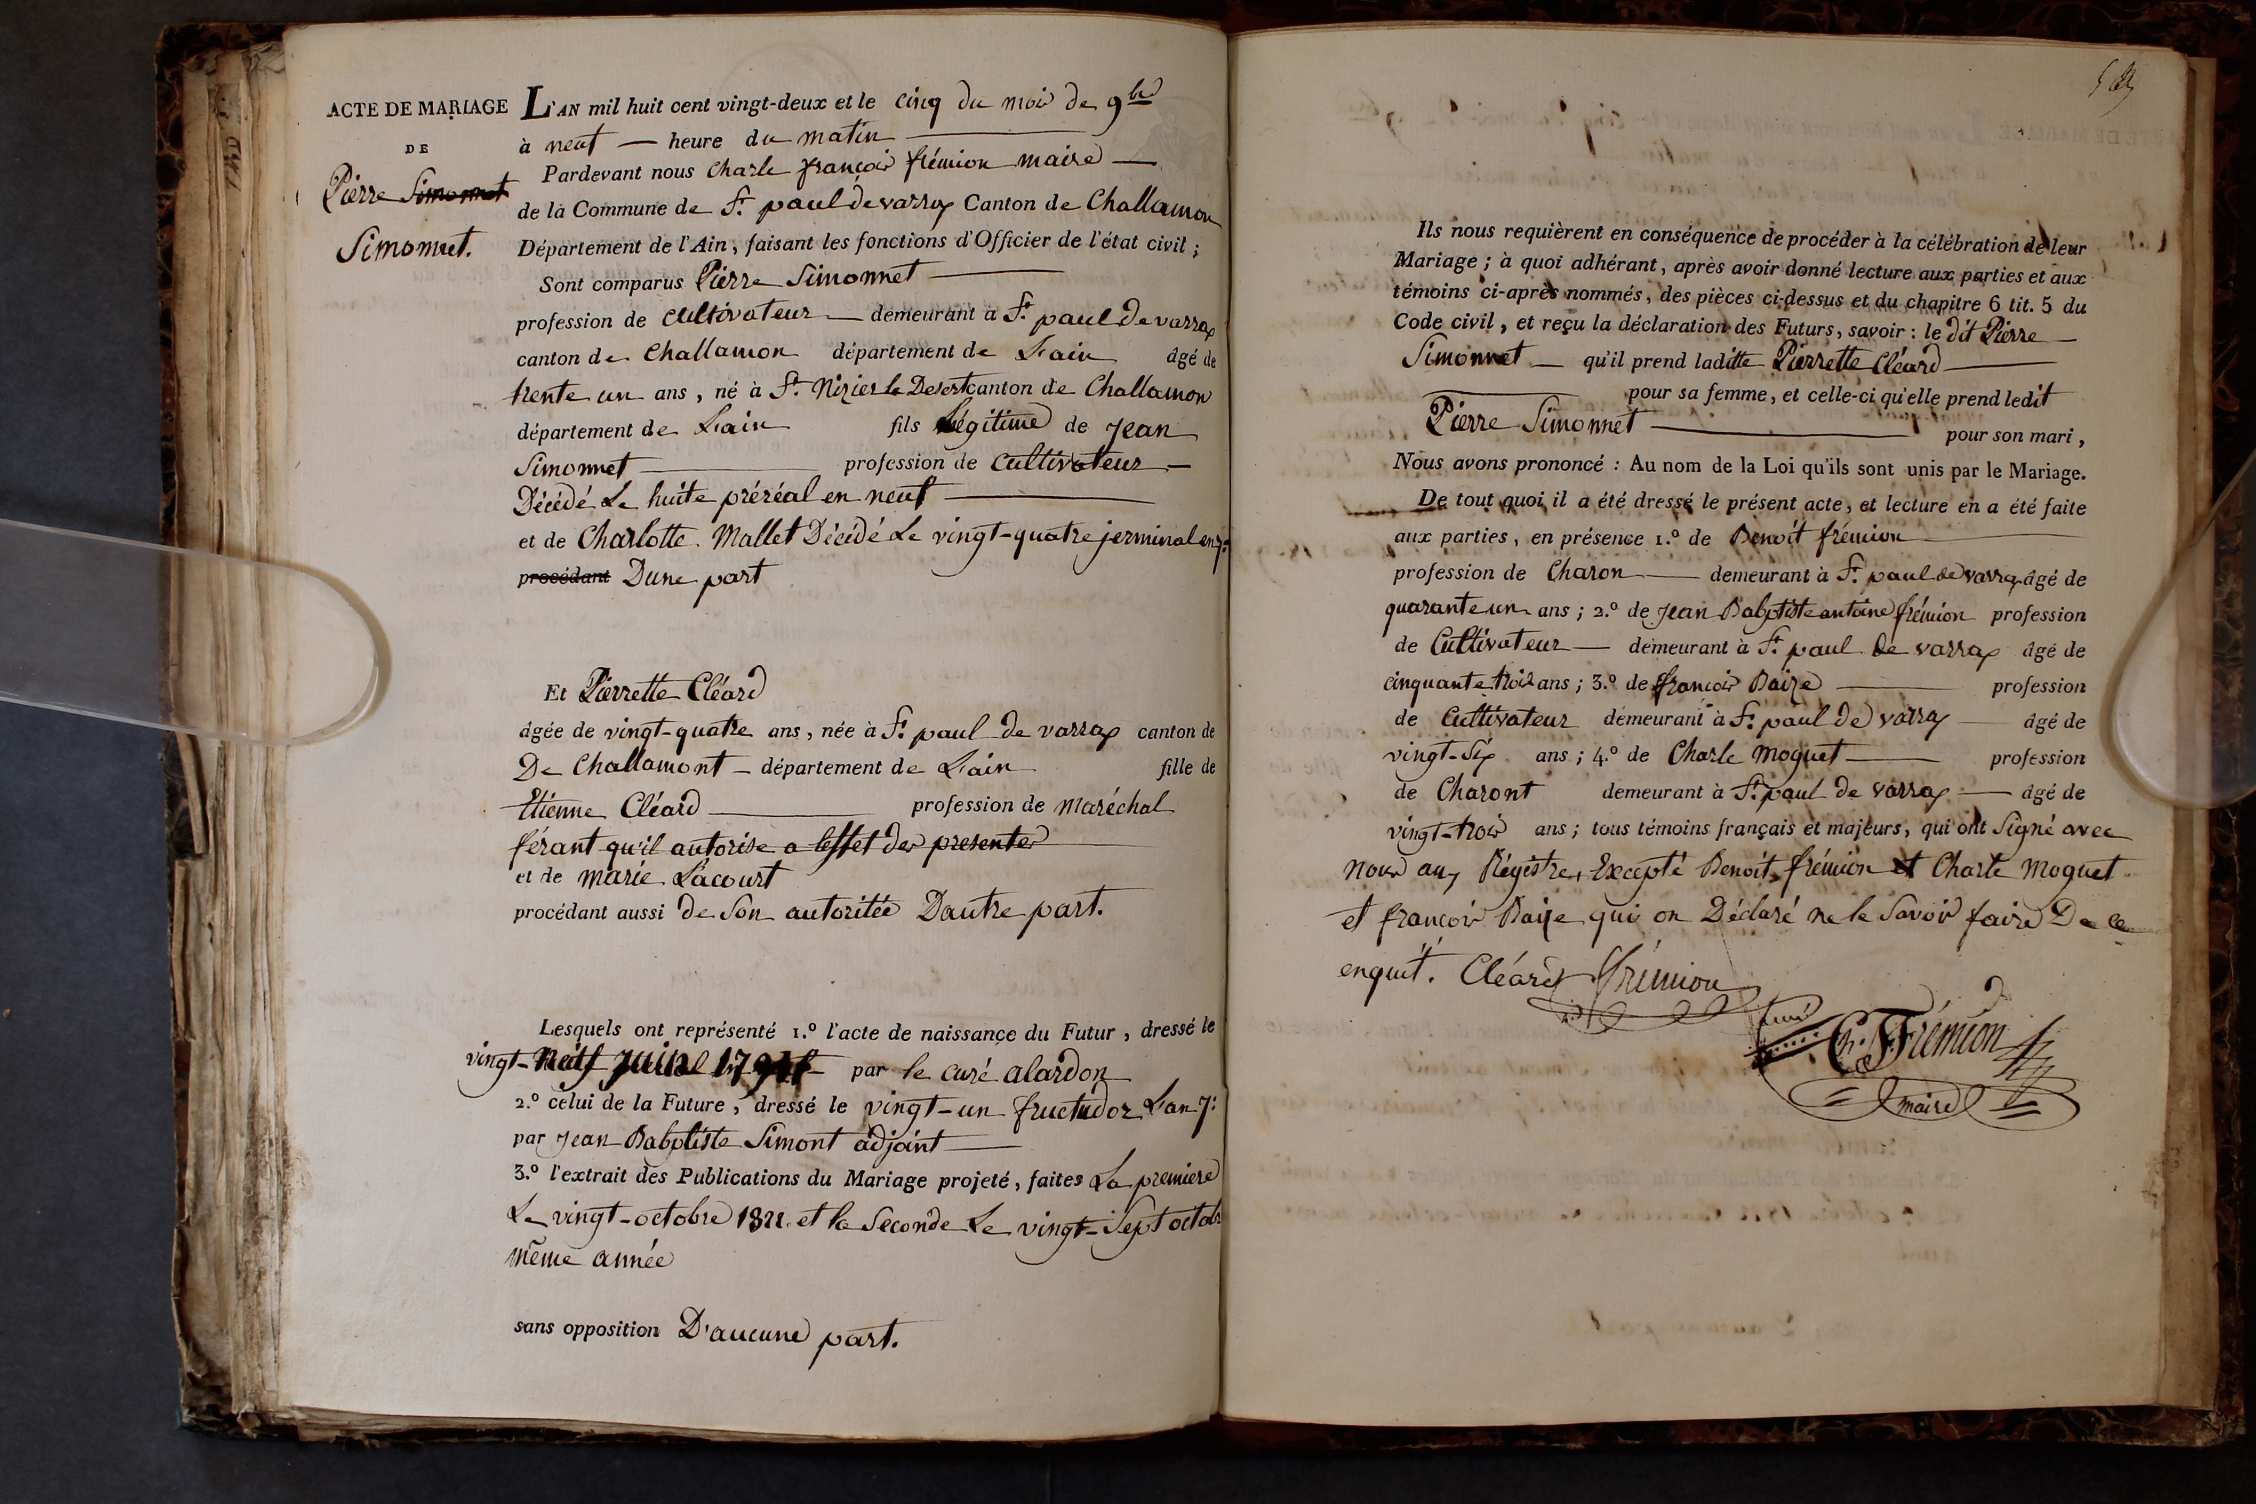 ACTE DE MARIAGE
DE
Pierre Simonnet
Simonnet.
L'AN mil huit cent vingt-deux et le cinq du mois de 9bre
à neuf — heure du matin
Pardevant nous Charle françois frémion maire —
de la Commune de St. paul de varrax Canton de Challamon
Département de l'Ain, faisant les fonctions d'Officier de l'état civil ;
Sont comparus Pierre Simonnet
profession de cultivateur — demeurant à St. paul de varrax
canton de Challamon département de L'ain âgé de
trente un ans, né à St. Nizier le Desert canton de Challamon
département de L'ain fils légitime de Jean
Simonnet profession de cultivateur —
Décédé Le huite préréal en neuf
et de Charlotte Mallet Décédé Le vingt-quatre jerminal en 7e
procédant Dune part
Et Pierrette Cléard
âgée de vingt-quatre ans, née à St. paul de varrax canton de
De Challamont — département de L'ain fille de
Etienne Cléard profession de maréchal
férant qu'il autorise a leffet des presentes
et de marie Lacourt
procédant aussi de Son autoritée Dautre part.
Lesquels ont représenté 1.º l'acte de naissance du Futur, dressé le
vingt-neuf Juin par le curé alardon
2.º celui de la Future, dressé le vingt-un fructudor L'an 7e
par Jean Babptiste Simont adjoint
3.º l'extrait des Publications du Mariage projeté, faites La premiere
Le vingt-octobre 1822 et la Seconde Le vingt-Sept octob
même année
sans opposition D'aucune part.
Ils nous requièrent en conséquence de procéder à la célébration de leur
Mariage ; à quoi adhérant, après avoir donné lecture aux parties et aux
témoins ci-après nommés, des pièces ci-dessus et du chapitre 6 tit. 5 du
Code civil, et reçu la déclaration des Futurs, savoir : le dit Pierre —
Simonnet — qu'il prend laditte Pierrette Cléard
pour sa femme, et celle-ci qu'elle prend ledit
Pierre Simonnet pour son mari,
Nous avons prononcé : Au nom de la Loi qu'ils sont unis par le Mariage.
De tout quoi il a été dressé le présent acte, et lecture en a été faite
aux parties, en présence 1.º de Benoit frémion
profession de Charon — demeurant à St. paul de varrax âgé de
quarante un ans ; 2.º de Jean Babptiste antoine frémion profession
de Cultivateur — demeurant à St. paul de varrax âgé de
cinquante trois ans ; 3.º de françois Baize profession
de Cultivateur demeurant à St. paul de varrax — âgé de
vingt-Six ans ; 4.º de Charle Moguet profession
de Charont demeurant à St. paul de varrax — âgé de
vingt-trois ans ; tous témoins français et majeurs, qui ont Signé avec
nous aux Régistre, Excepté Benoit frémion et Charle Moguet
et françois Baize qui on Déclaré ne le Savoir faire De ce
enquit. Cléard frémion
Ch. F. Frémion
maire